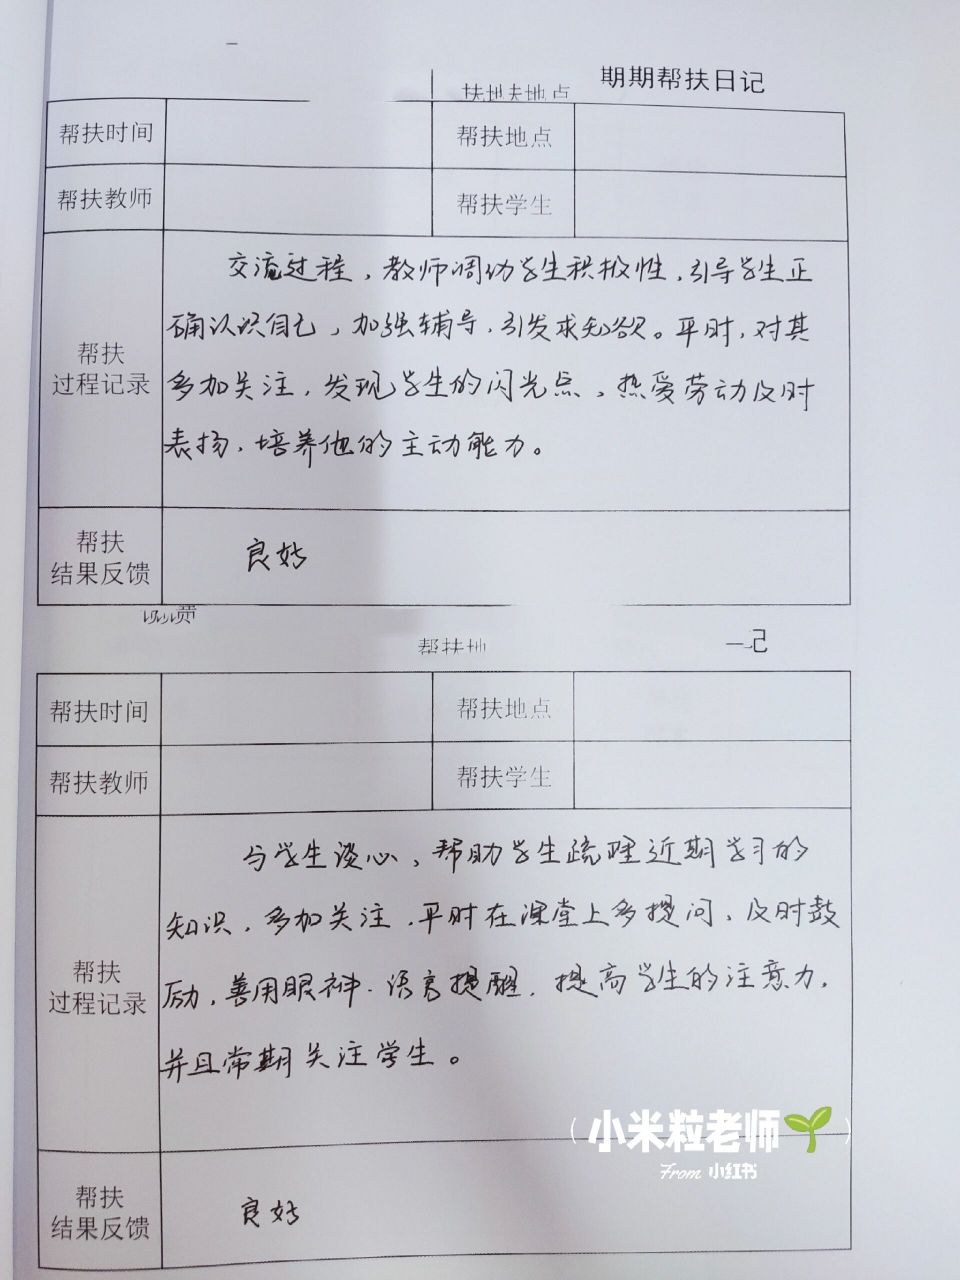 期期帮扶日记
扶地夫地点
帮扶时间 帮扶地点
帮扶教师 帮扶学生
帮扶
过程记录
交流过程，教师调动学生积极性，引导学生正
确认识自己，加强辅导，引发求知欲。平时，对其
多加关注，发现学生的闪光点、热爱劳动及时
表扬，培养他的主动能力。
帮扶
结果反馈
良好
帮扶地
记
帮扶时间 帮扶地点
帮扶教师 帮扶学生
帮扶
过程记录
与学生谈心，帮助学生疏理近期学习的
知识，多加关注，平时在课堂上多提问，及时鼓
励，善用眼神、语言提醒，提高学生的注意力，
并且常期关注学生。
帮扶
结果反馈
良好
（小米粒老师🌱）
From 小红书